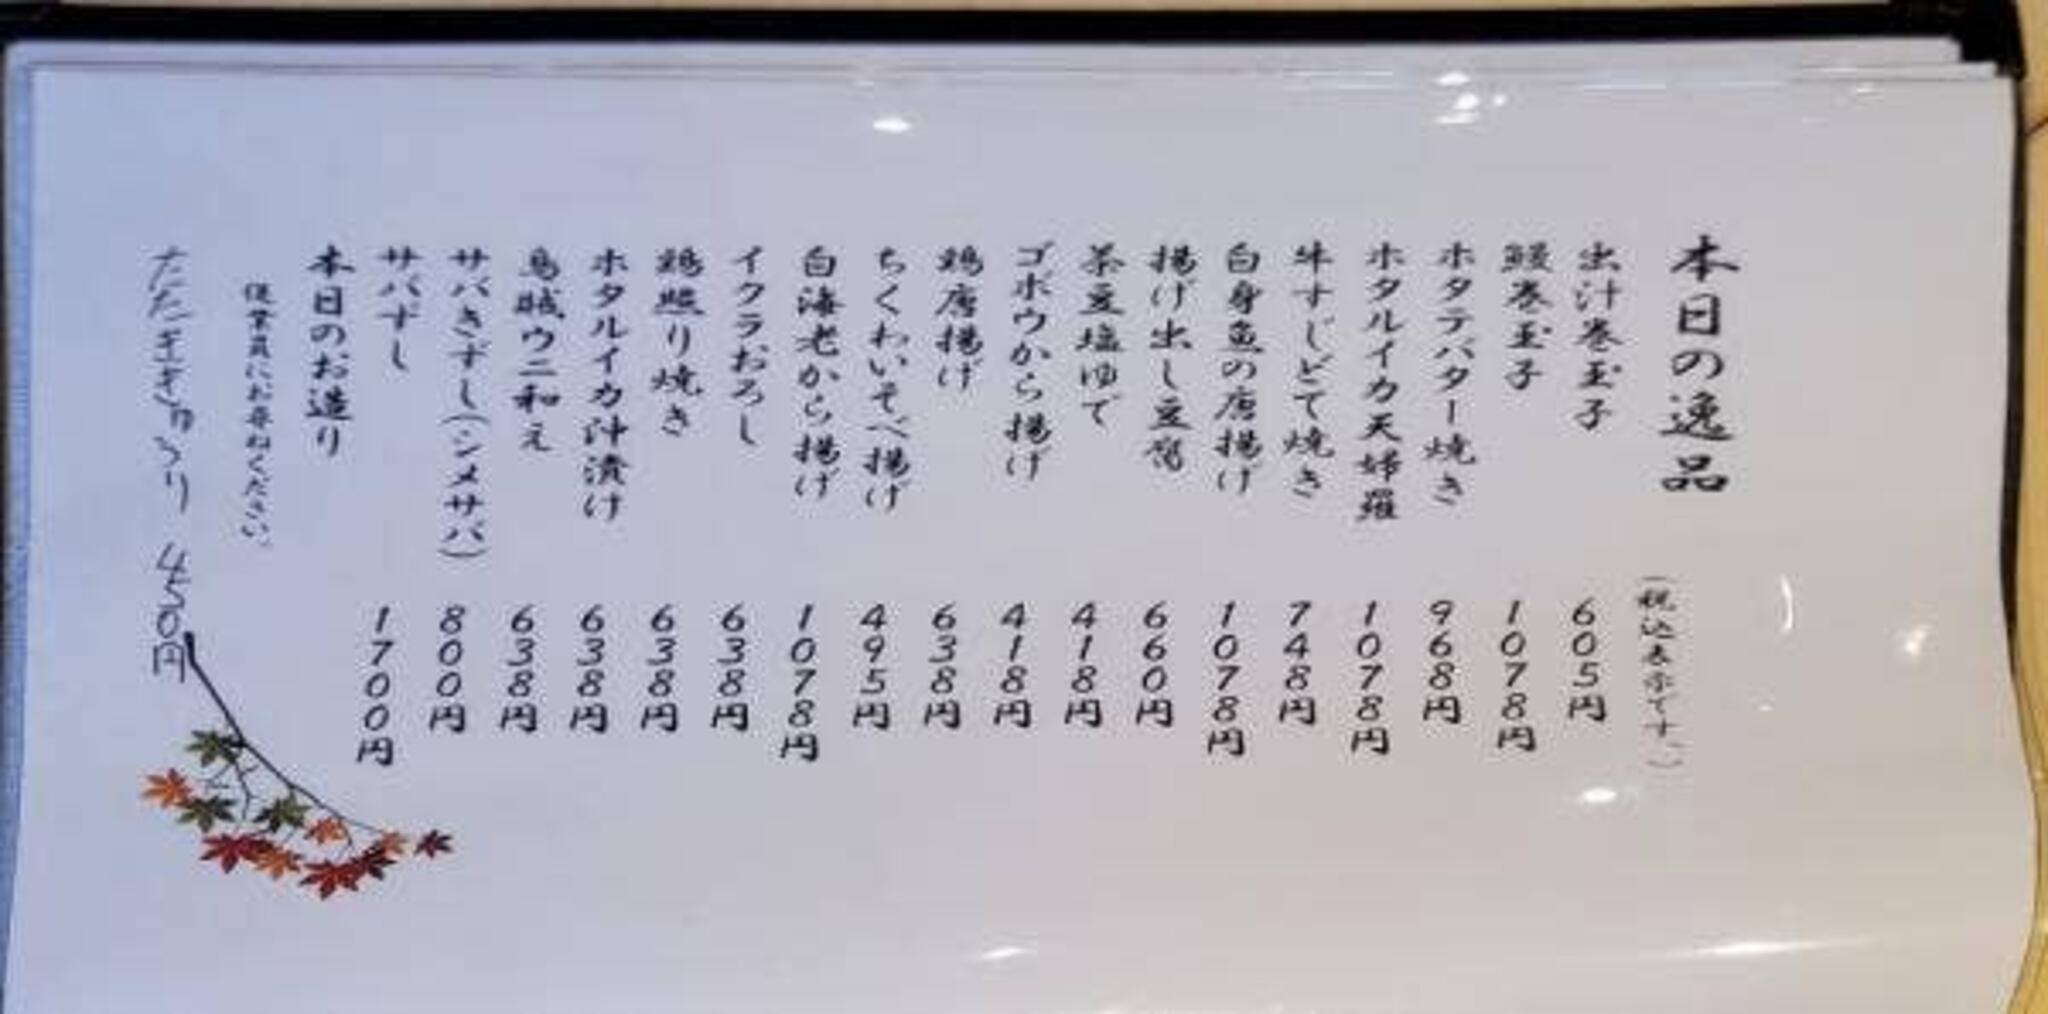 本日の逸品
(税込表示です。)
出汁巻玉子 605円
鰻巻玉子 1078円
ホタテバター焼き 968円
ホタルイカ天婦羅 1078円
牛すじどて焼き 748円
白身魚の唐揚げ 1078円
揚げ出し豆腐 660円
茶豆塩ゆで 418円
ゴボウから揚げ 418円
鶏唐揚げ 638円
ちくわいそべ揚げ 495円
白海老から揚げ 1078円
イクラおろし 638円
鶏照り焼き 638円
ホタルイカ沖漬け 638円
烏賊ウニ和え 638円
サバきずし(シメサバ) 800円
サバずし 1700円
本日のお造り
従業員にお尋ねください。
たたききゅうり 450円